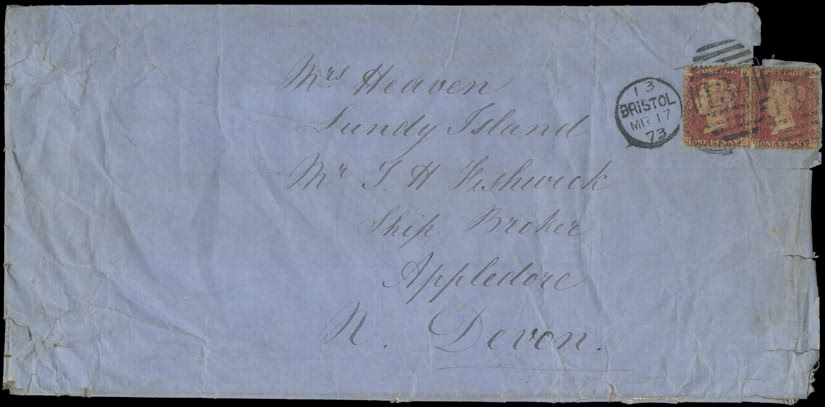 Mrs Heaven
Lundy Island
Mr T H Fishwick
Ship Broker
Appledore
N. Devon.
13
BRISTOL
MR 17
73
POSTAGE
ONE PENNY
POSTAGE
ONE PENNY